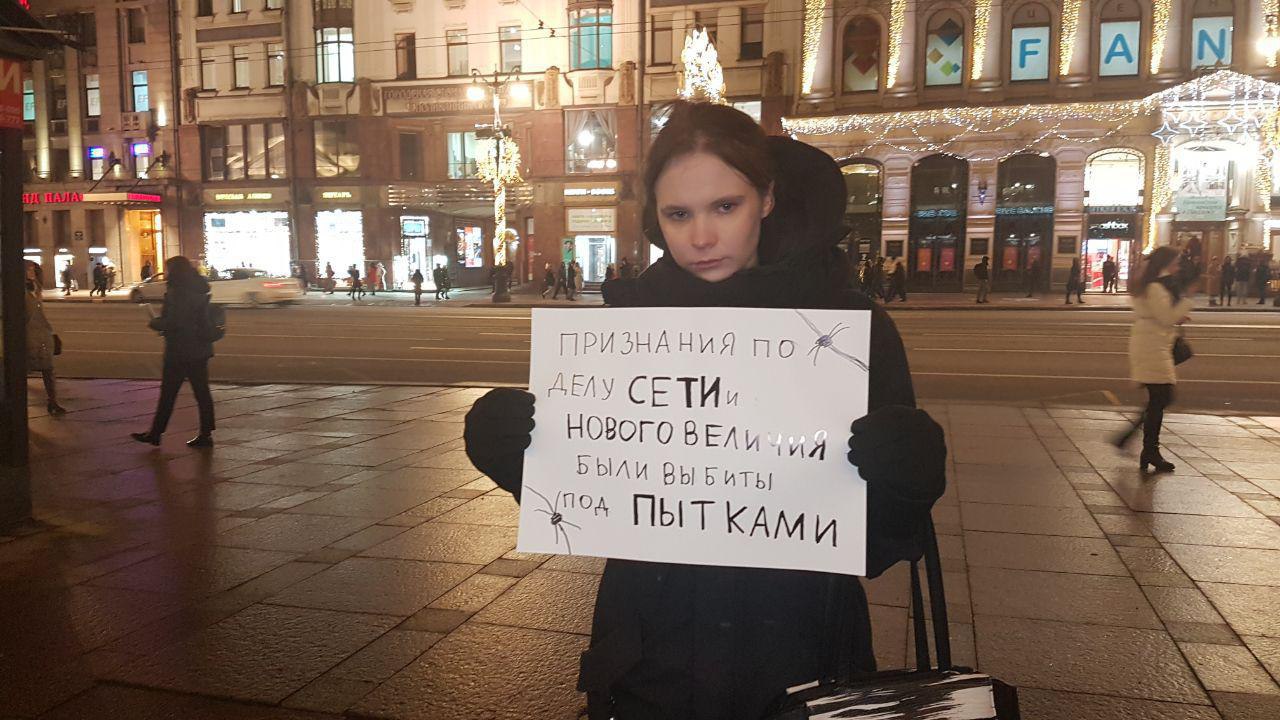 ПРИЗНАНИЯ ПО
ДЕЛУ СЕТИ и
НОВОГО ВЕЛИЧИЯ
БЫЛИ ВЫБИТЫ
ПОД ПЫТКАМИ
F A N